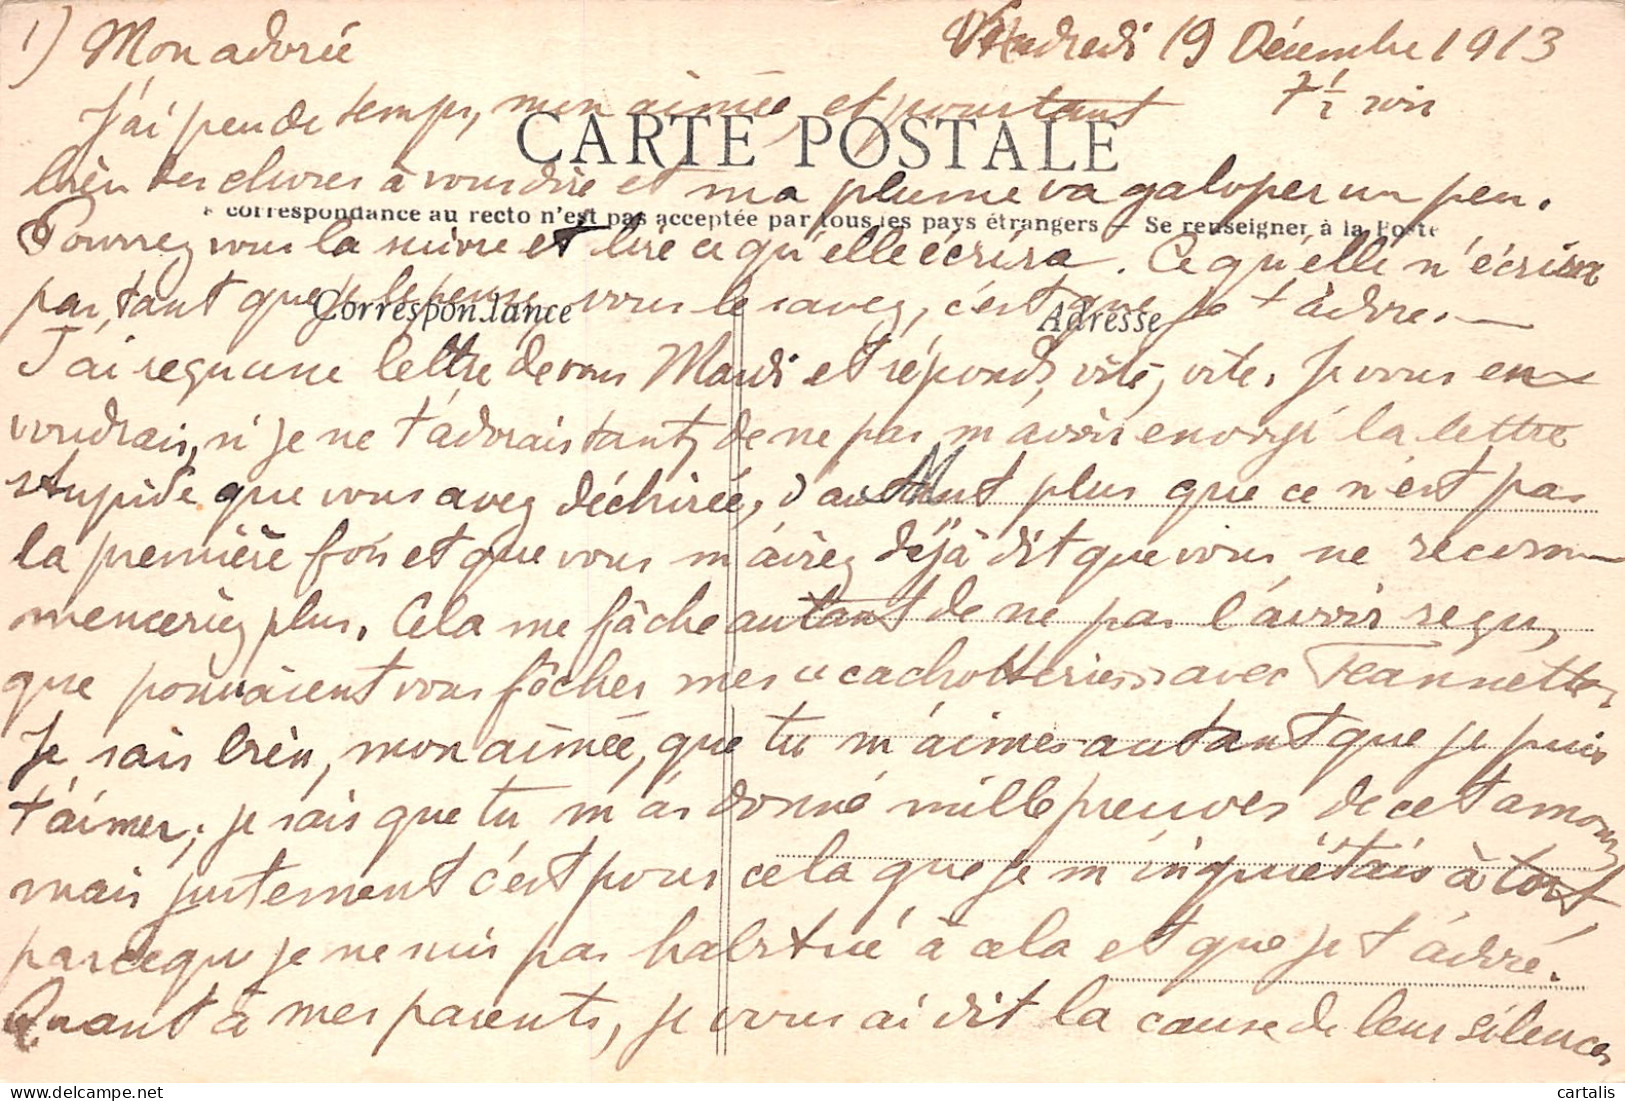 1) Mon adorée Vendredi 19 Décembre 1913
7 1/2 soir
J'ai peu de temps, mon aimée, et pourtant
CARTE POSTALE
bien des choses à vous dire et ma plume va galoper un peu.
correspondance au recto n'est pas acceptée par tous les pays étrangers — Se renseigner à la Poste
Pourrez vous la suivre et lire ce qu'elle écrira. Ce qu'elle n'écrira
pas, tant que je le pense, vous le savez, c'est que je t'adore. —
Correspondance Adresse
J'ai reçu une lettre de vous Mardi et réponds, vite, vite. Je vous en
voudrais, si je ne t'adorais tant, de ne pas m'avoir envoyé la lettre
stupide que vous avez déchirée, d'autant plus que ce n'est pas
la première fois et que vous m'aviez déjà dit que vous ne recom-
menceriez plus. Cela me fâche autant de ne pas l'avoir reçu,
que pouvaient vous fâcher mes "cachotteries" avec Jeannette,
Je sais bien, mon aimée, que tu m'aimes autant que je puis
t'aimer; je sais que tu m'as donné mille preuves de cet amour,
mais justement c'est pour cela que je m'inquiétais à tort,
parce que je ne suis pas habitué à cela et que je t'adore.
Quant à mes parents, je vous ai dit la cause de leur silence
cartalis